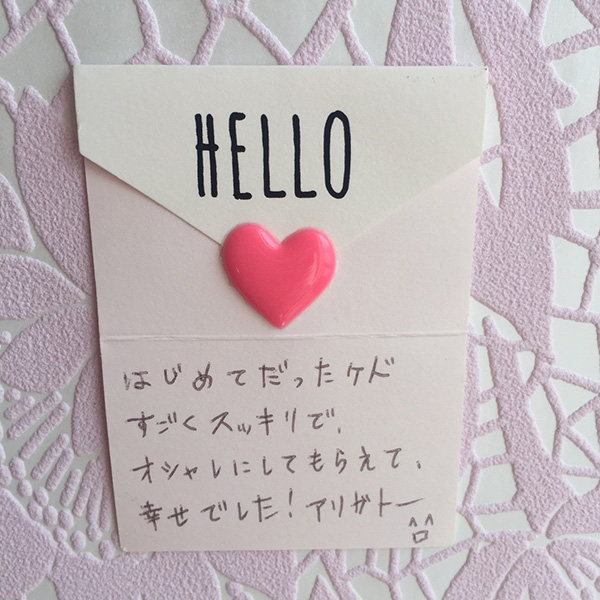 HELLO
はじめてだったケド
すごくスッキリで、
オシャレにしてもらえて、
幸せでした!アリガトー